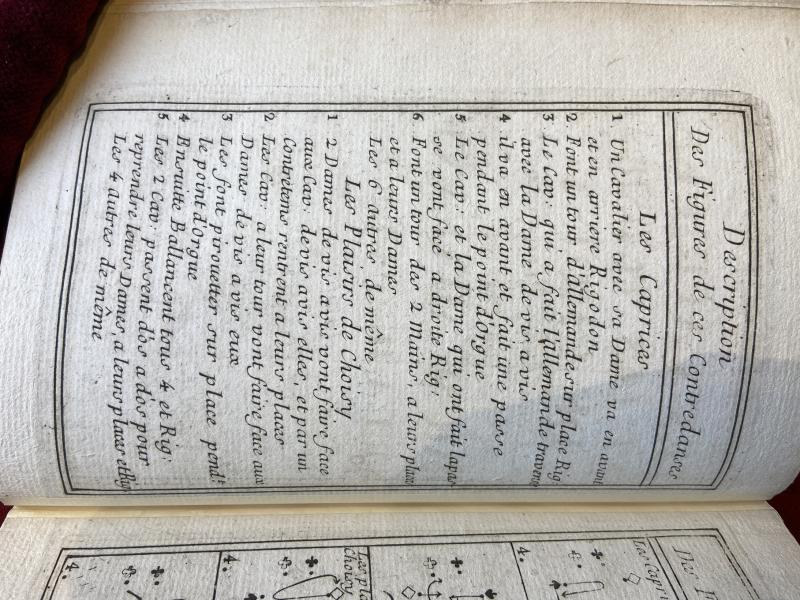 Description
Des Figures de ces Contredanses
Les Caprices
1 Un Cavalier avec sa Dame va en avant
et en arriere Rigodon
2 Font un tour d'allemande sur place Rig
3 Le Cav: qui a fait l'allemande traverse
avec la Dame de vis a vis
4 il va en avant et fait une passe
pendant le point d'orgue
5 Le Cav: et la Dame qui ont fait la passe
se vont face a droite Rig:
6 Font un tour des 2 Mains, a leurs places
et a leurs Dames
Les 6 autres de même
Les Plaisirs de Choisy.
1 2 Dames de vis a vis vont faire face
aux Cav: de vis avis elles, et par un
Contretems rentrent a leurs places
2 Les Cav: a leur tour vont faire face aux
Dames de vis a vis eux
3 Les font pirouetter sur place pend:t
le point d'orgue
4 Ensuitte Ballancent tous 4 et Rig:
5 Les 2 Cav: passent dos a dos pour
reprendre leurs Dames, a leurs places et Rig
Les 4 autres de même
Des
Les Capri
4.
Les pla
Choisy
4.
4.